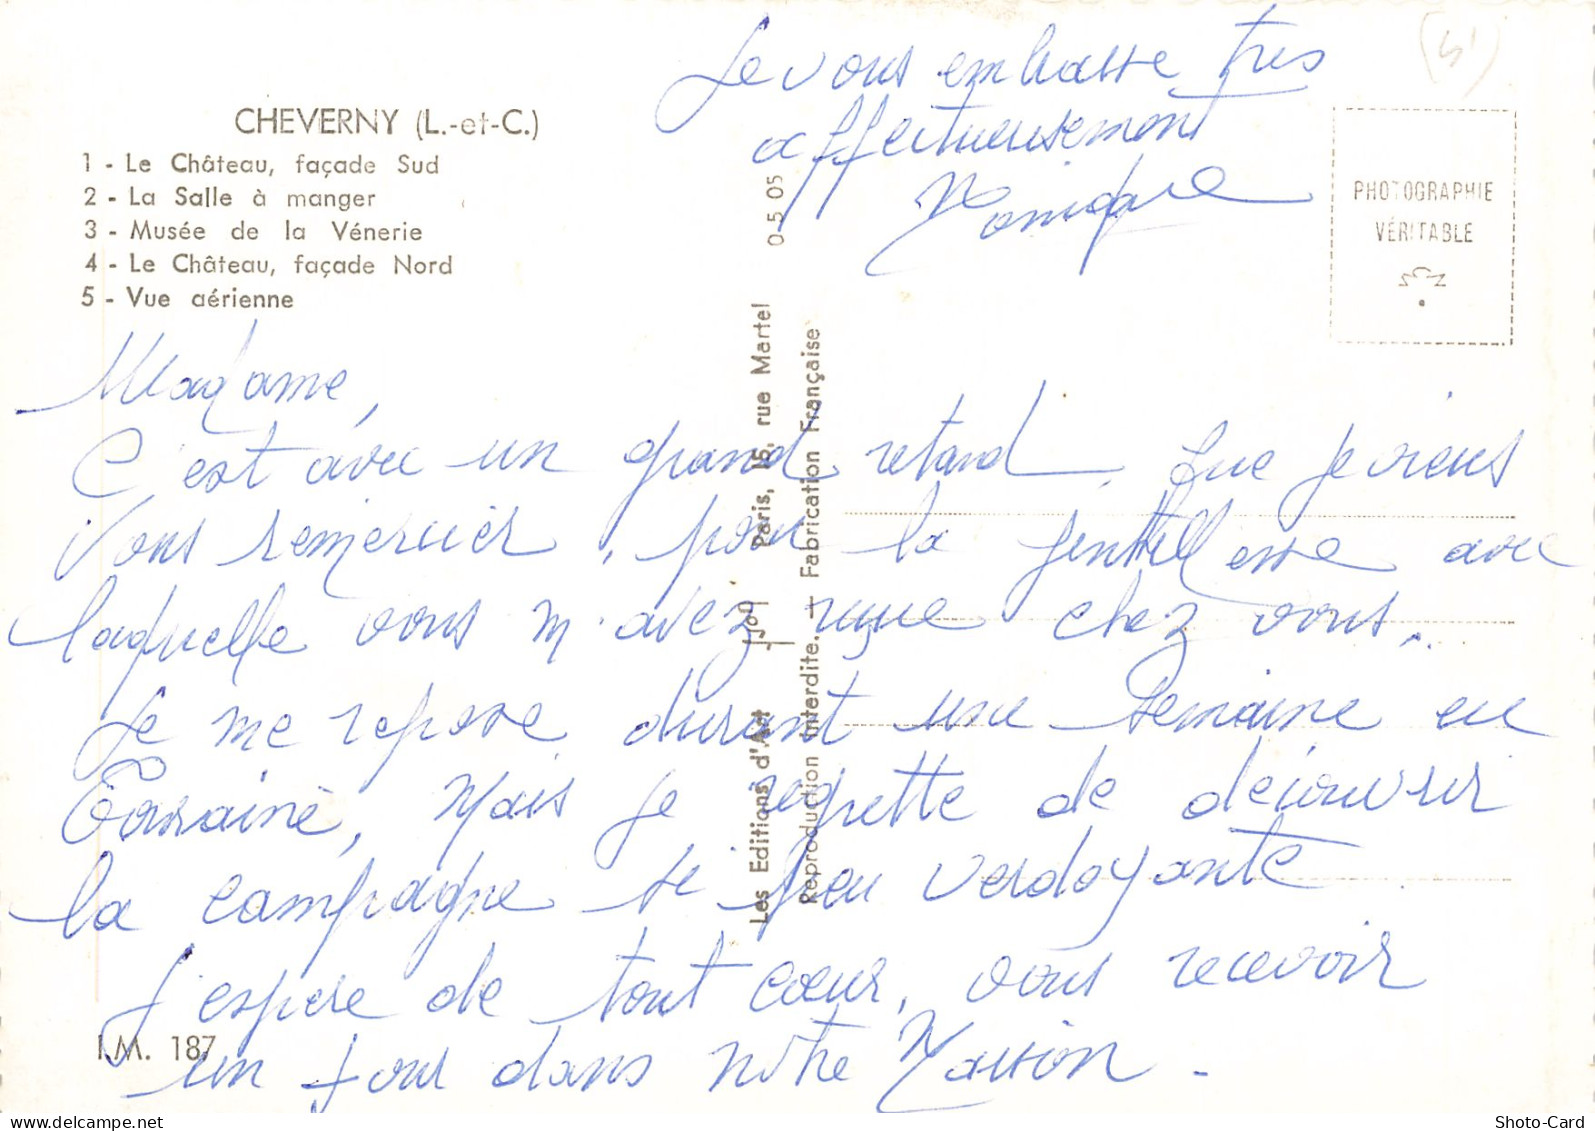 CHEVERNY (L.-et-C.)
1 - Le Château, façade Sud
2 - La Salle à manger
3 - Musée de la Vénerie
4 - Le Château, façade Nord
5 - Vue aérienne
Madame,
C'est avec un grand retard, que je viens
vous remercier, pour la gentillesse avec
laquelle vous m'avez reçue chez vous.
Je me repose durant une semaine en
Touraine, mais je regrette de découvrir
la campagne si peu verdoyante
J'espère de tout cœur, vous recevoir
un jour dans notre Maison.
Je vous embrasse très
affectueusement
Monique
PHOTOGRAPHIE
VÉRITABLE
Les Editions d'Art Yvon Paris, 15, rue Martel 0 5 05
Reproduction Interdite. - Fabrication Française
I.M. 187
Shoto-Card